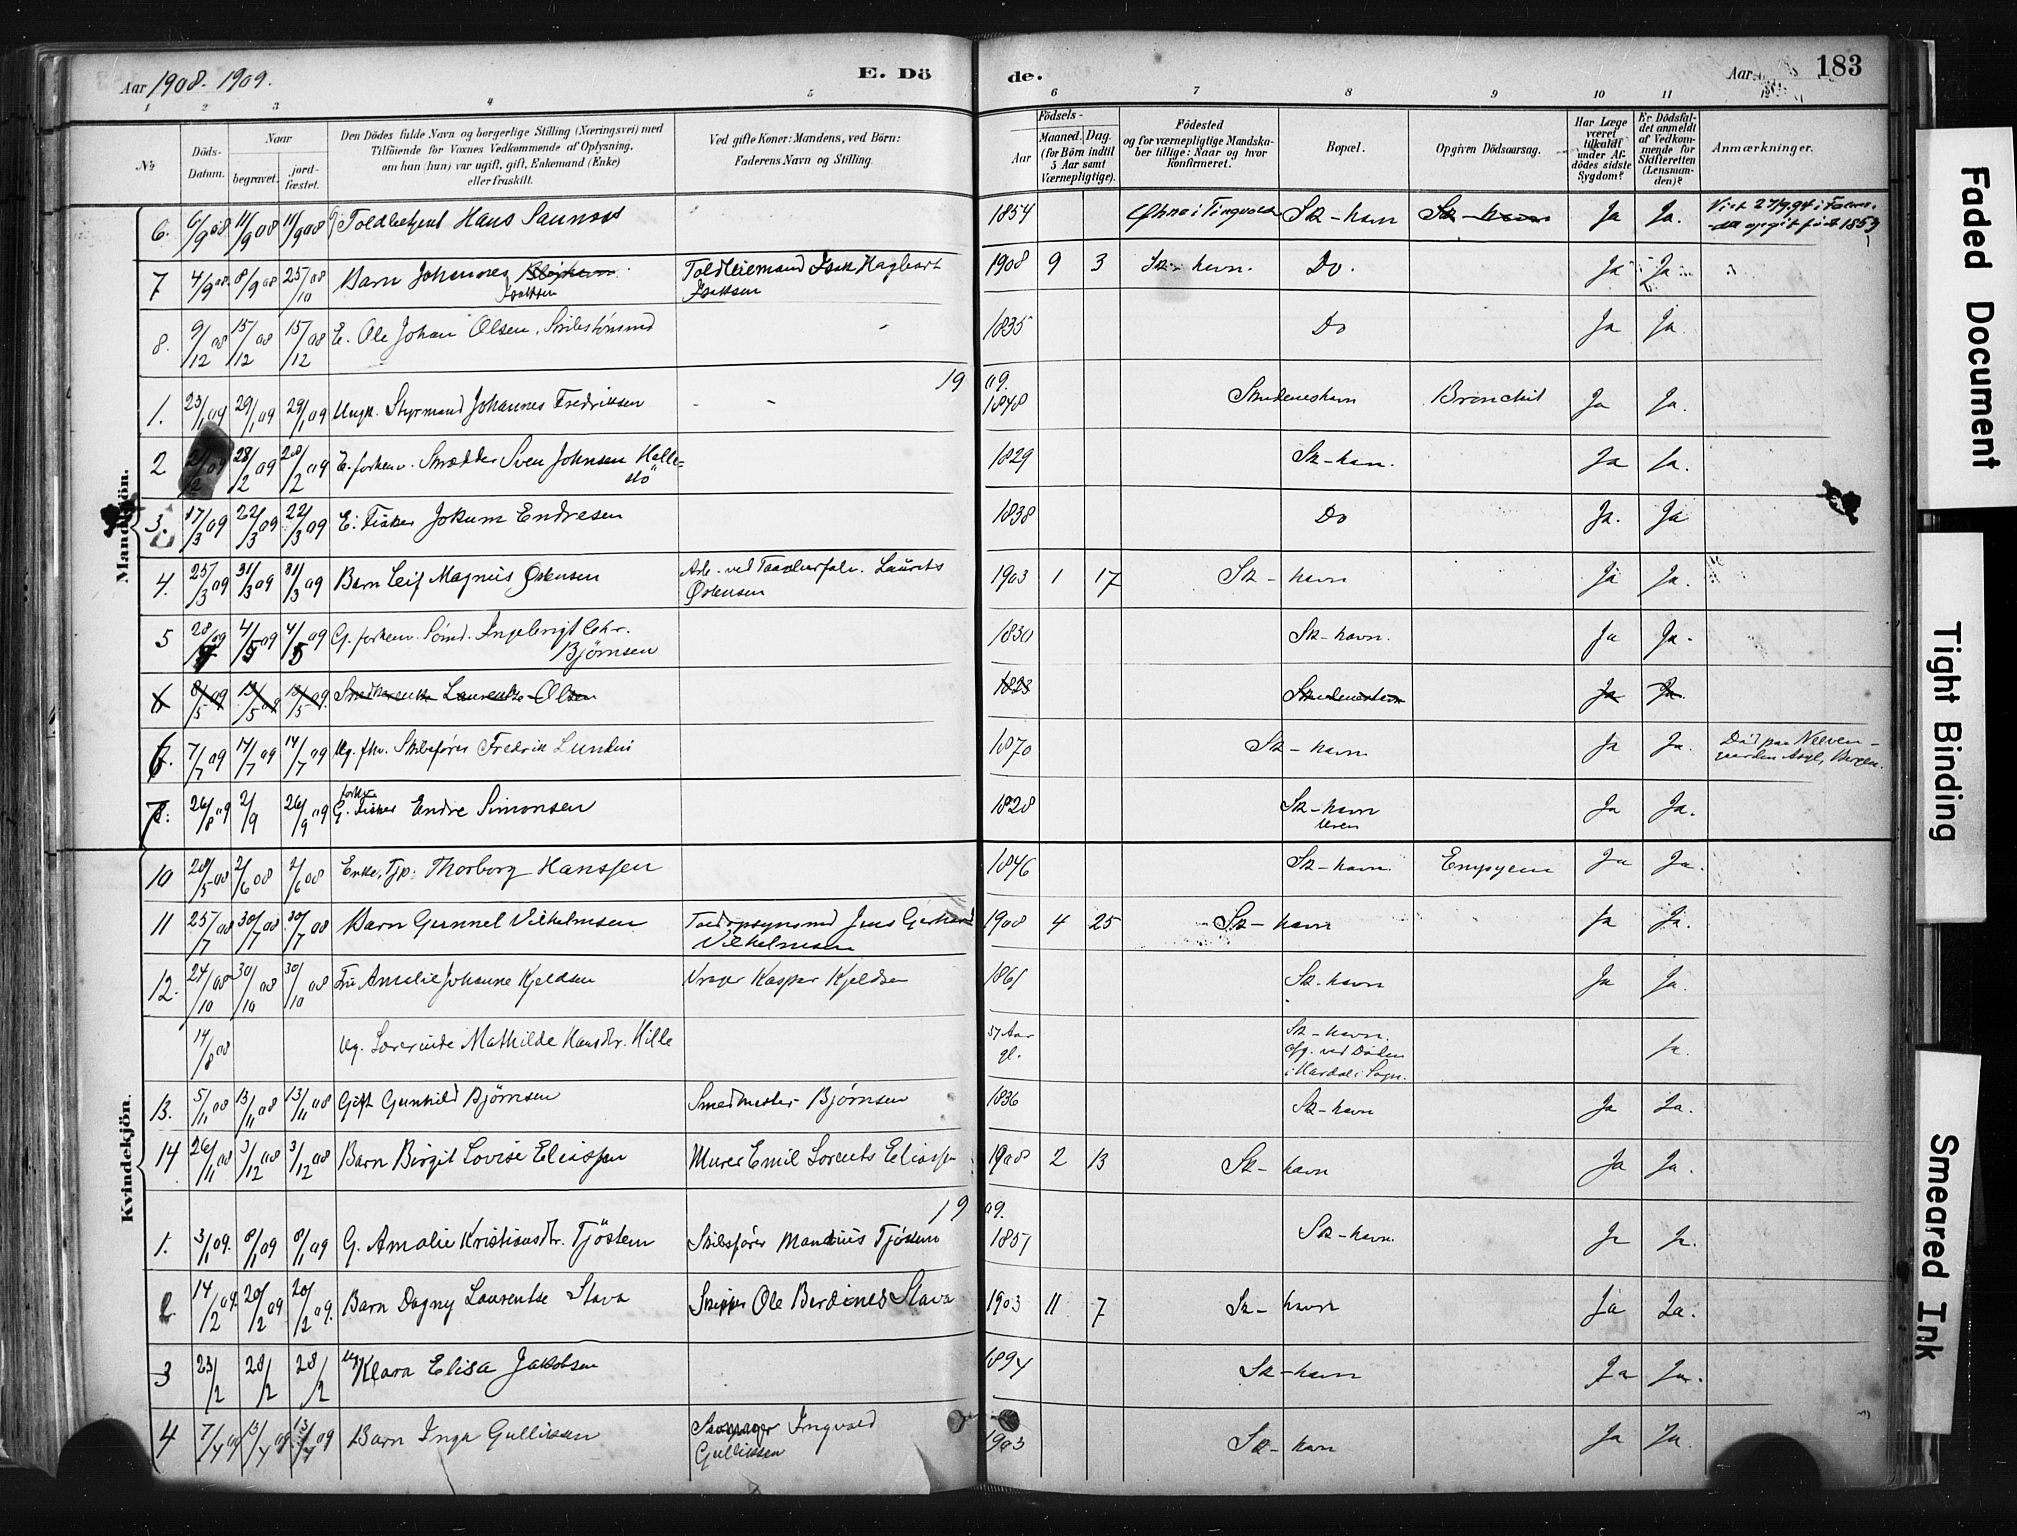 Aar 1908. 1909.
E. Dö
de.
Aar
183
1 2 3 4 5 6 7 8 9 10 11 12
No
Döds-
Datum.
Naar
begravet.
jord-
fæstet.
Den Dödes fulde Navn og borgerlige Stilling (Næringsvei) med
Tilföiende for Voxnes Vedkommende af Oplysning,
om han (hun) var ugift, gift, Enkemand (Enke)
eller fraskilt.
Ved gifte Koner: Mandens, ved Börn:
Faderens Navn og Stilling.
Födsels-
Aar
Maaned. Dag.
(for Börn indtil
5 Aar samt
Værnepligtige).
Födested
og for værnepligtige Mandska-
ber tillige: Naar og hvor
konfirmeret.
Bopæl.
Opgiven Dödsaarsag.
Har Læge
været
tilkaldt
under Af-
dödes sidste
Sygdom?
Er Dödsfal-
det anmeldt
af Vedkom-
mende for
Skifteretten
(Lensman-
den)?
Anmærkninger.
Mandkjön.
6. 6/9 08 11/9 08 11/9 08 Toldbetjent Hans Saunæs 1854 Tingvold Sk-havn Sk-havn Ja Ja. Vi-t 27/9,94 i
opgit født 1853
7 4/9 08 8/9 08 25/10 08 Barn Johannes
Isaksen
Toldleiemand Isak Hagbart
Isaksen
1908 9 3 Sk-havn. Do. Ja Ja
8. 9/12 08 15/12 08 15/12 08 E. Ole Johan Olsen, 1835 Do Ja Ja.
1909.
1. 23/1 09 29/1 09 29/1 09 Ungk. Styrmand Johannes Fredriksen - - 1848 Skudeneshavn Bronchit Ja Ja.
2 21/2 09 28/2 09 28/2 09 E. forhenv. Skrædder Sven Johnsen Halle=
stö
1829 Sk-havn. Ja Ja.
3. 17/3 09 22/3 09 22/3 09 E. Fisker Jokum Endresen 1838 Do Ja. Ja
4. 25/3 09 31/3 09 31/3 09 Barn Leif Magnus Østensen
Arb. ved Laurits
Østensen
1903 1 17 Sk-havn Ja Ja.
5 28/4 09 4/5 09 4/5 09 G. forhenv. Sömd. Ingebrigt Chr.
Bjørnsen
1830 Sk-havn. Ja Ja.
6 8/5 09 13/5 09 13/5 09. Laurentse Olsen 1823 Skudeneshavn Ja Ja.
6. 7/7 09 14/7 09 14/7 09 Ug. fhv. Skibsfører Fredrik Lundus 1870 Sk-havn Ja Ja. Död paa Neeven-
gaarden Asyl, Bergen.
7. 26/8 09 2/9 26/9 09 G. forhv. Fisker Endre Simonsen 1828 Sk-havn
Ja Ja.
Kvindekjön.
10 28/5 08 2/6 08 2/6 08 Enke, Tjp. Thorborg Hanssen 1846 Sk-havn. Empyem Ja Ja.
11 25/7 08 30/7 08 30/7 08 Barn Gunnel Vilhelmsen
Toldopsynsmd Jens Gerhard
Vilhelmsen
1908 4 25 Sk-havn Ja Ja.
12. 24/10 08 30/10 08 30/10 08 Fru Amalie Johanne Kjeldsen Vrager Kasper Kjeldsen 1861 Sk-havn Ja Ja.
14/8 08 Ug. Lærerinde Mathilde Hansdtr. Hille 37 Aar
gl.
Sk-havn.
Opg. ved Dalen
i Aardal i Sogn.
Ja.
13. 5/11 08 13/11 08 13/11 08 Gift Gunhild Bjørnsen Smedmester Bjørnsen 1836 Sk-havn Ja Ja.
14 26/11 08 3/12 08 3/12 08 Barn Birgit Lovise Eliassen Murer Emil Lorents Eliassen 1908 2 13 Sk-havn Ja Ja.
1909.
1. 3/1 09. 8/1 09 8/1 09 G. Amalie Kristiansdtr. Tjöstem Skibsfører Mandius Tjöstem 1851 Sk-havn. Ja Ja.
2 14/2 09 20/2 09 20/2 09. Barn Dagny Laurentse Stava Skipper Ole Berdines Stava 1903 11 7 Sk-havn Ja Ja.
3 23/2 28/2 28/2 Ug Klara Elisa Jakobsen 1894 Sk-havn Ja Ja.
4 7/4 09 13/4 09 13/4 09 Barn Inga Gulliksen
Ingvald
Gulliksen
1903 Sk-havn Ja Ja.
Faded Document
Tight Binding
Smeared Ink